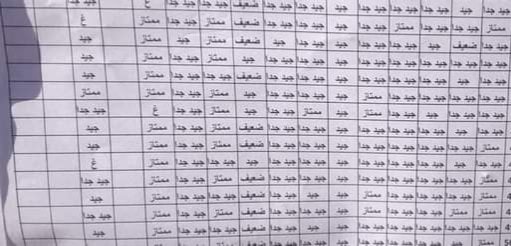 جيد جدا جيد جيد جدا جيد جدا جيد جدا جيد جيد جدا جيد جدا ضعيف جيد جدا جيد جدا غ جيد جدا
ممتاز جيد جدا جيد جدا ممتاز جيد جدا جيد جيد جدا جيد جدا ضعيف ممتاز جيد جدا ممتاز غ
جيد جدا ضعيف جيد جيد جدا جيد جدا جيد جيد جدا جيد ضعيف ممتاز جيد ممتاز جيد
جيد جدا جيد جدا جيد جدا جيد جدا جيد جدا جيد جيد جدا جيد جدا جيد ممتاز جيد جدا ممتاز جيد
جيد جدا جيد جيد جدا جيد جدا جيد جدا جيد جيد جدا جيد جدا ضعيف جيد جدا جيد جدا ممتاز جيد
جيد جدا جيد جدا جيد جدا جيد جدا ممتاز جيد جيد جدا جيد جدا جيد ممتاز جيد جدا ممتاز ممتاز
جيد جدا جيد جدا جيد جيد جدا ممتاز جيد ممتاز جيد جدا جيد ممتاز جيد جدا غ جيد جدا
جيد جدا جيد جيد جدا جيد جدا جيد جدا جيد جيد جدا جيد جدا ضعيف ممتاز جيد جدا ممتاز جيد
ممتاز جيد جدا جيد جدا جيد جدا جيد جدا جيد جيد جدا جيد جدا ضعيف ممتاز جيد جدا ممتاز جيد
جيد جدا جيد جيد جدا جيد جدا جيد جدا جيد جيد جدا جيد جدا جيد جيد جدا جيد جدا ممتاز غ
4 ممتاز جيد جدا جيد جدا جيد جدا جيد جدا جيد جيد جدا جيد جدا ضعيف ممتاز جيد جدا ممتاز جيد جدا
4 ممتاز جيد جدا جيد جدا جيد جدا ممتاز جيد جيد جيد جدا ضعيف ممتاز جيد جدا ممتاز جيد
4 ممتاز ممتاز جيد جدا جيد جدا ممتاز جيد جيد جدا جيد جدا ضعيف ممتاز جيد جدا ممتاز جيد جدا
4 جيد جدا جيد جدا جيد جدا جيد جدا ممتاز جيد جيد جيد جدا ضعيف جيد جدا جيد جدا ممتاز جيد